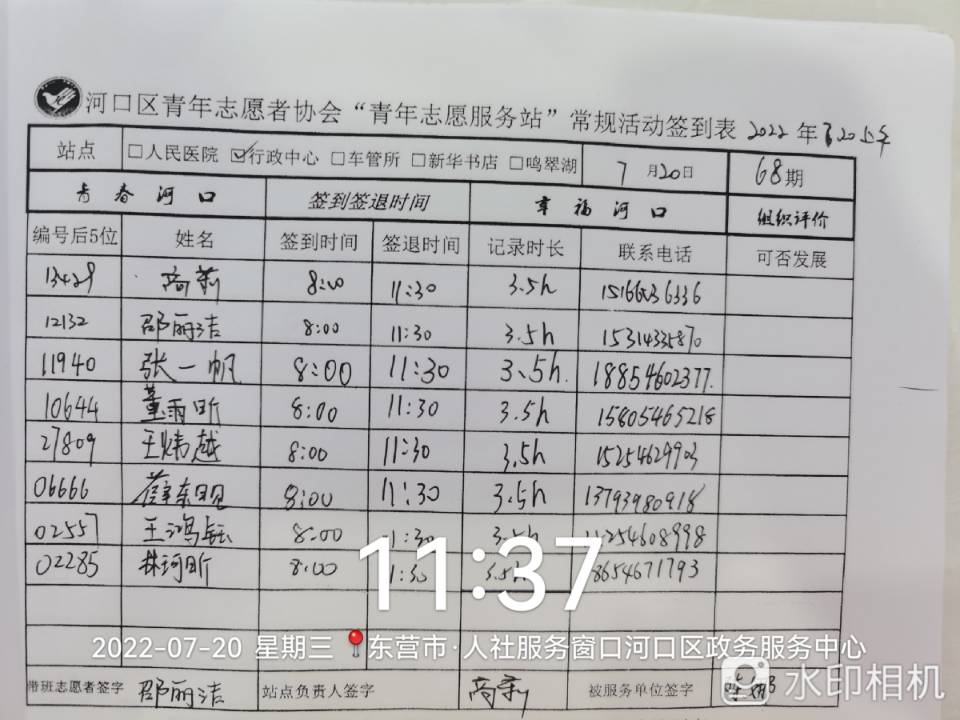 河口区青年志愿者协会“青年志愿服务站”常规活动签到表 2022年7.20上午
站点 □人民医院 ☑行政中心 □车管所 □新华书店 □鸣翠湖 7月20日 68期
青春河口 签到签退时间 幸福河口 组织评价
编号后5位 姓名 签到时间 签退时间 记录时长 联系电话 可否发展
13429 高莉 8:00 11:30 3.5h
12132 邵丽洁 8:00 11:30 3.5h 15314335870
11940 张一帆 8:00 11:30 3.5h. 18854602377.
10644 董雨昕 8:00 11:30 3.5h 15805465218
27809 王炜越 8:00 11:30 3.5h 15254629903
06666 薛东明 8:00 11:30 3.5h 13793980918
02557 王鸿钰 8:00 1:30 3.5h 254608998
02285 林珂昕 8:00 1:30 3.5h 8654671793
11:37
2022-07-20 星期三 东营市·人社服务窗口河口区政务服务中心
带班志愿者签字 邵丽洁 站点负责人签字 高莉 被服务单位签字
水印相机